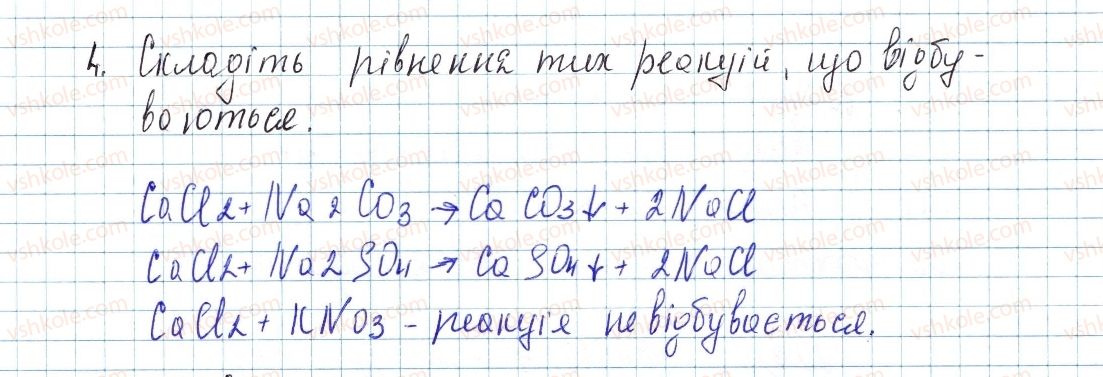 4. Складіть рівнення тих реакцій, що відбу-
ваються.
CaCl2 + Na2CO3 → CaCO3↓ + 2NaCl
CaCl2 + Na2SO4 → CaSO4↓ + 2NaCl
CaCl2 + KNO3 - реакція не відбувається.
vshkole.com